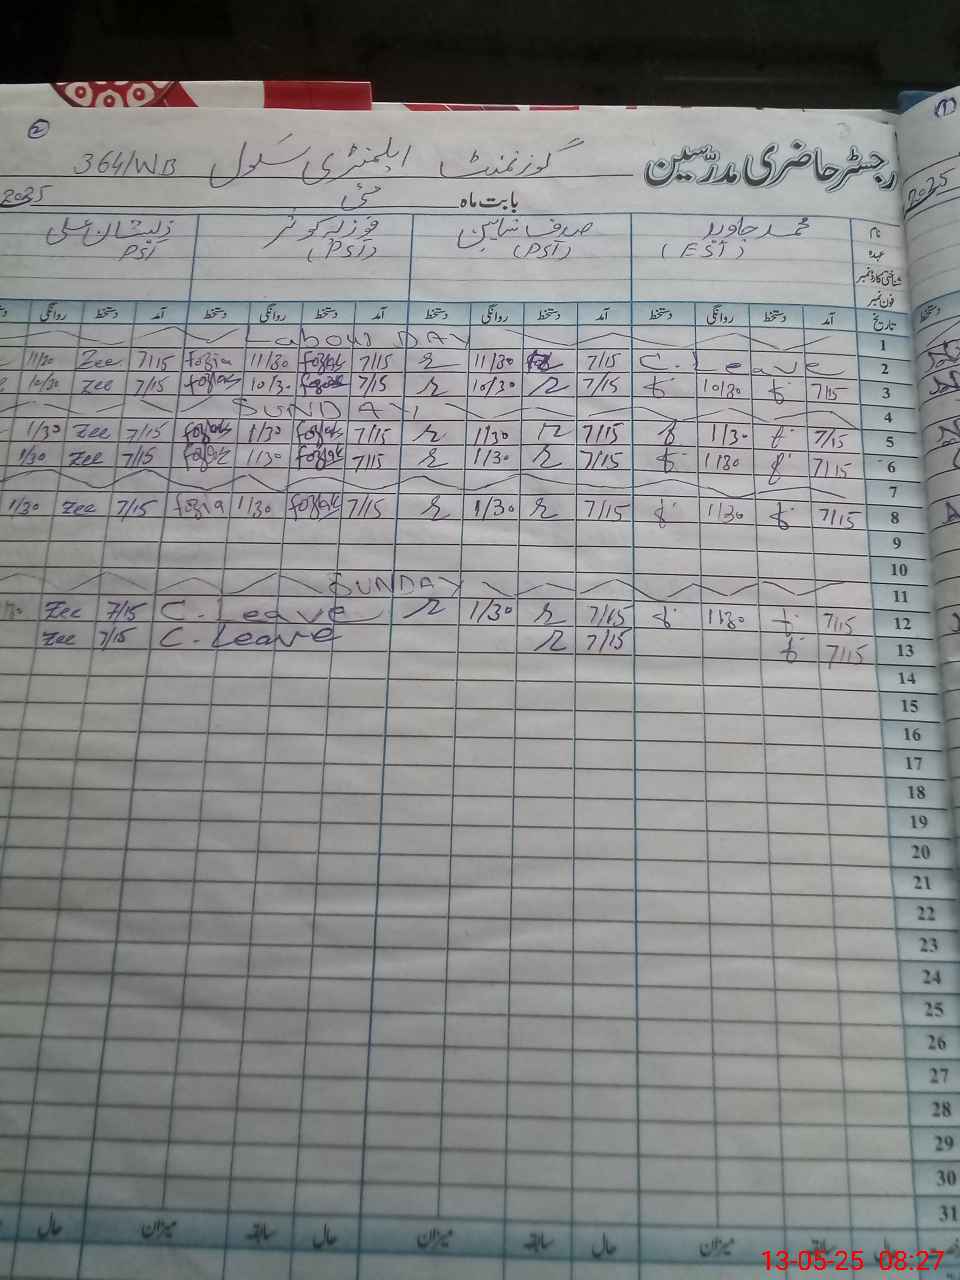 رجسٹر حاضری مدرّسین گورنمنٹ ایلیمنٹری سکول 364/WB
بابت ماہ مئی 2025
نام محمد جاوید صدف شاہین فوزیہ کوثر ذیشان علی
عہدہ (EST) (PST) (PST) PST
شناختی کارڈ نمبر
فون نمبر
تاریخ آمد دستخط روانگی دستخط آمد دستخط روانگی دستخط آمد دستخط روانگی دستخط آمد دستخط روانگی
1 Labour DAY
2 C. Leave 7/15 11/30 7/15 11/30 fozia 7/15 Zee 11/30
3 7/15 10/30 7/15 10/30 7/15 10/30 7/15 Zee 10/30
4 SUNDAY
5 7/15 1/30 7/15 1/30 7/15 1/30 7/15 Zee 1/30
6 7/15 1/30 7/15 1/30 7/15 1/30 7/15 Zee 1/30
7
8 7/15 1/30 7/15 1/30 7/15 1/30 fozia 7/15 Zee 1/30
9
10
11 SUNDAY
12 7/15 1/30 7/15 1/30 C. Leave 7/15 Zee
13 7/15 7/15 C. Leave 7/15 Zee
14
15
16
17
18
19
20
21
22
23
24
25
26
27
28
29
30
31
حال سابقہ میزان حال سابقہ میزان حال سابقہ میزان حال
13-05-25 08:27